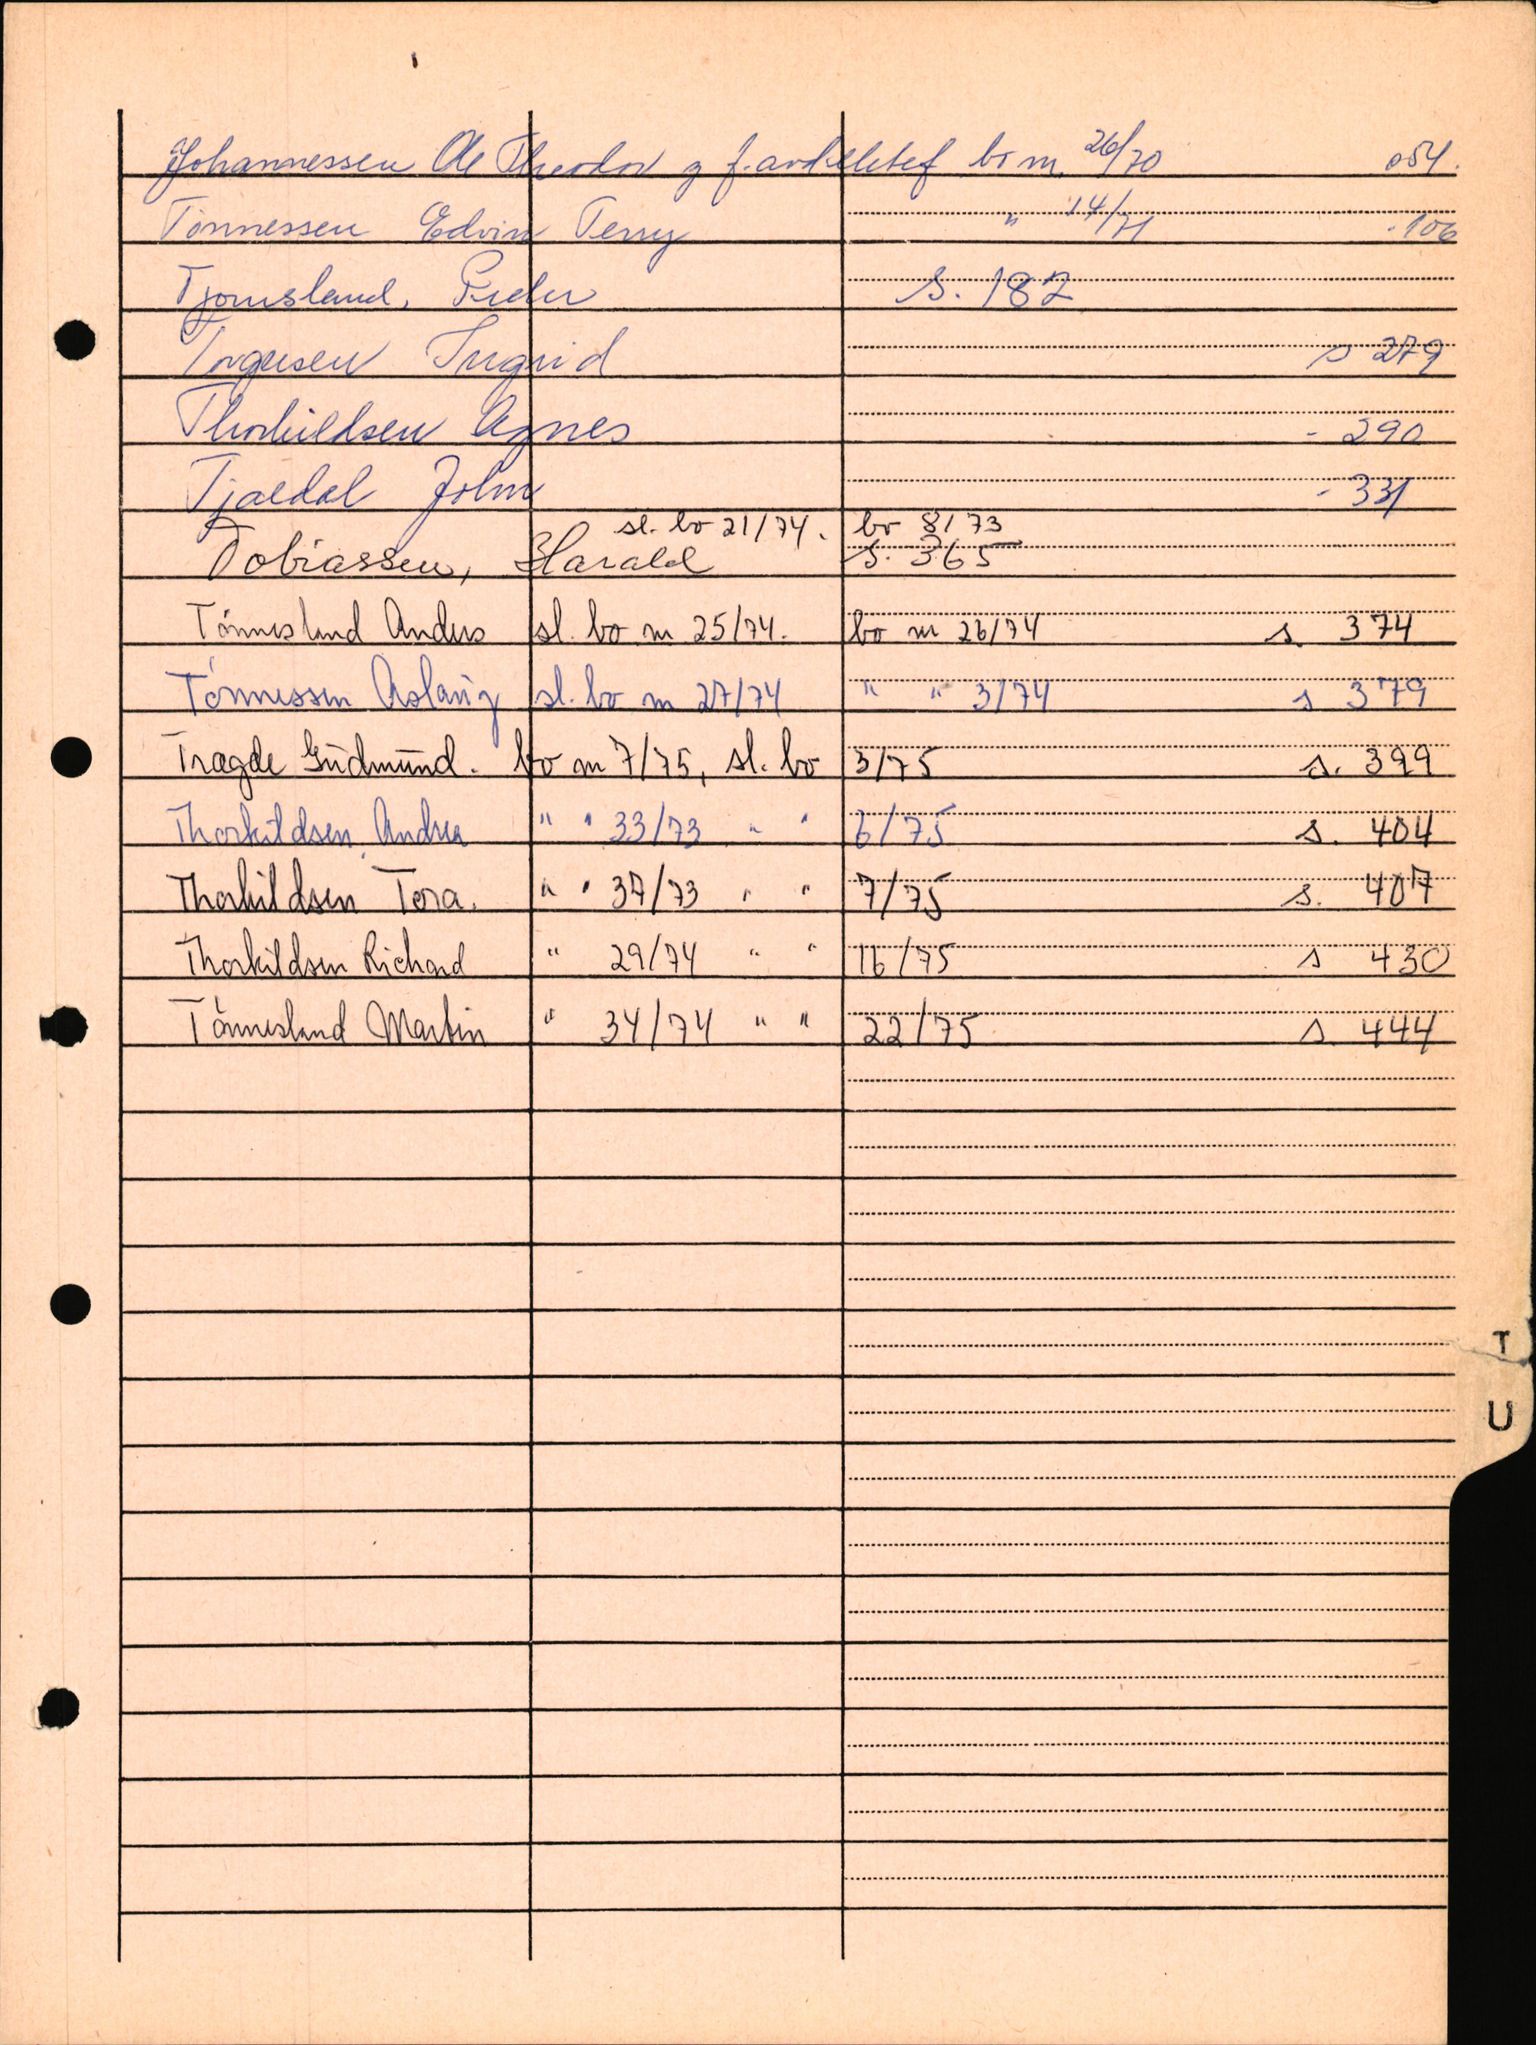 Johannessen Ole Theodor g f. avd. bo m. 26/70 s 54.
Tönnessen Edvin Terry " 14/71 - 106
Tjomsland, Peder S. 182
Torgusen Ingrid s 279
Thorkildsen Agnes - 290
Tjaldal John - 331
sl. bo 21/74. bo 8/73
Tobiassen, Harald s. 365
Tönnesland Anders sl. bo m 25/74. bo m 26/74 s. 374
Tönnessen Aslaug sl. bo m 27/74 " " 3/74 s 379
Tragde Gudmund. bo m 7/75, sl. bo 3/75 s. 399
Thorkildsen Andrea " " 33/73 " " 6/75 s. 404
Thorkildsen Tora. " " 37/73 " " 7/75 s. 407
Thorkildsen Richard " 29/74 " " 16/75 s 430
Tönnesland Martin " 34/74 " " 22/75 s. 444
T
U